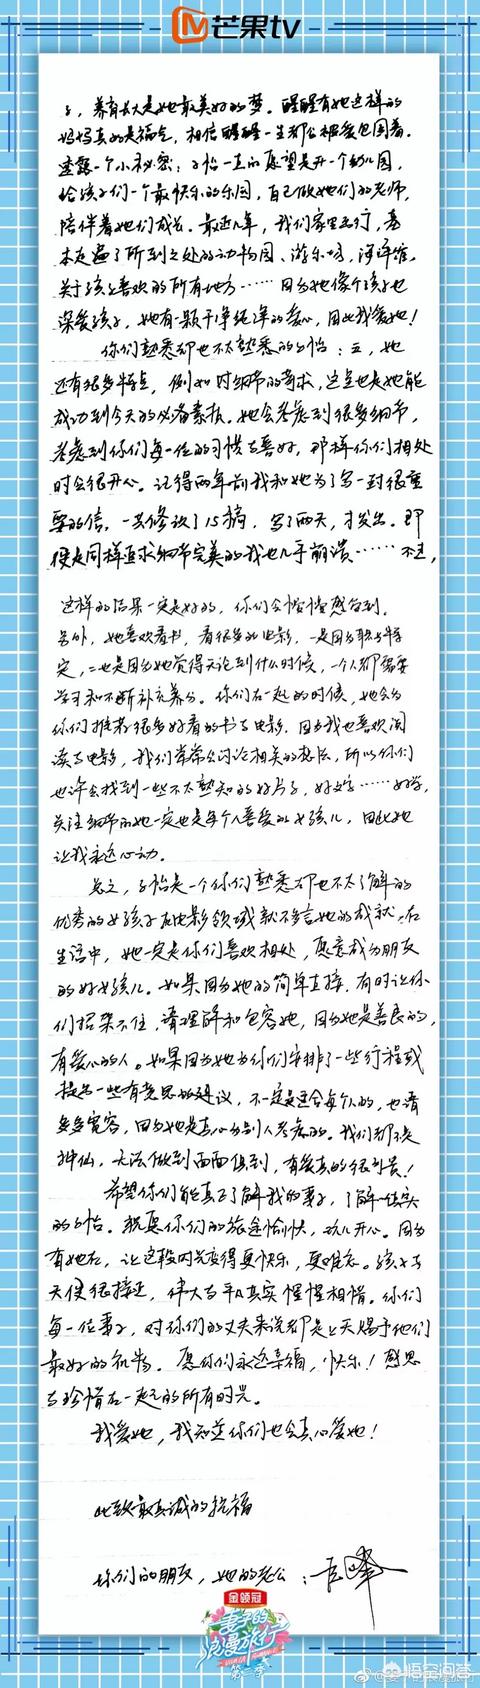 芒果tv
子，养育长大是她最美好的梦。醒醒有她这样的
妈妈真的是福气，相信醒醒一生都会被爱包围着。
透露一个小秘密：子怡一直的愿望是开一个幼儿园，
给孩子们一个最快乐的乐园，自己做她们的老师，
陪伴着她们成长。最近几年，我们家里出行，基
本走遍了所到之处的动物园、游乐场、海洋馆，
关于孩子喜欢的所有地方……因为她像个孩子也
深爱孩子，她有一颗干净纯洁的爱心，因此我爱她！
你们熟悉却也不太熟悉的子怡：五，她
还有很多特点，例如对细节的苛求，这点也是她能
成功到今天的必备素振。她会考虑到很多细节，
考虑到你们每一位的习惯与喜好，那样你们相处
时会很开心。记得两年前我和她为了写一封很重
要的信，一共修改了15稿，写了两天，才发出。即
便是同样追求细节完美的我也几乎崩溃……不过，
这样的结果一定是好的，你们会慢慢感合到。
另外，她喜欢看书，看很多的电影，一是因为职业特
定，二也是因为她觉得无论到什么时候，一个人都需要
学习和不断补充养分。你们在一起的时候，她会为
你们推荐很多好看的书与电影，因为我也喜欢阅
读与电影，我们常常会讨论相关的想法，所以你们
也许会找到一些不太熟知的好片子，好文字……好学，
关注细节的她一定也是每个人喜爱的女孩儿，因此她
让我永远心动。
总之，子怡是一个你们熟悉却也不太了解的
优秀的女孩子在电影领域就不多言她的成就，在
生活中，她一定是你们喜欢相处，愿意成为朋友
的好女孩儿。如果因为她的简单直接，有时让你
们招架不住，请理解和包容她，因为她是善良的，
有爱心的人。如果因为她为你们安排了一些行程或
提出一些有意思的建议，不一定是适合每个人的，也请
多多宽容，因为她是真心为别人考虑的。我们都不是
神仙，无法做到面面俱到，有爱真的很可贵！
希望你们能真正了解我的妻子，了解一个真实
的子怡。祝愿你们的旅途愉快，玩儿开心。因为
有她在，让这段时光变得更快乐，更难忘。孩子与
天使很接近，伟大与平凡其实惺惺相惜。你们
每一位妻子，对你们的丈夫来说都是上天赐予他们
最好的礼物。愿你们永远幸福，快乐！感恩
与珍惜在一起的所有时光。
我爱她，我知道你们也会真心爱她！
此致最真诚的祝福
你们的朋友，她的老公：汪峰
金领冠
妻子的
浪漫旅行
第二季
悟空问答